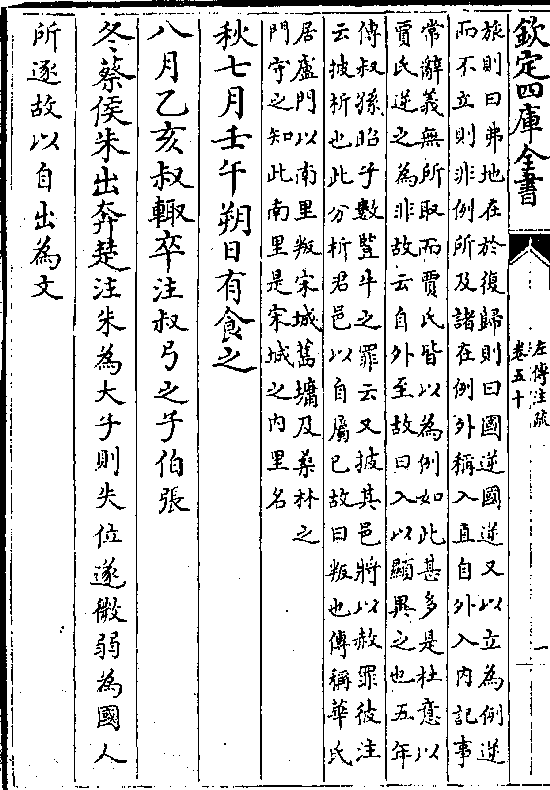 欽定四庫全書
左傳注疏
卷五十
一
旅則曰弗地在於復歸則曰國逆國逆又以立為例逆
而不立則非例所及諸在例外稱入直自外入内記事
常辭義無所取而賈氏皆以為例如此甚多是杜意以
賈氏逆之為非故云自外至故曰入以顯異之也五年
傳叔孫昭子數豎牛之罪云又披其邑將以赦罪彼注
云披析也此分析君邑以自屬已故曰叛也傳稱華氏
居盧門以南里叛宋城舊墉及桑林之
門守之知此南里是宋城之内里名
秋七月壬午朔日有食之
八月乙亥叔輙卒注叔弓之子伯張
冬蔡侯朱出奔楚注朱為大子則失位遂微弱為國人
所逐故以自出為文